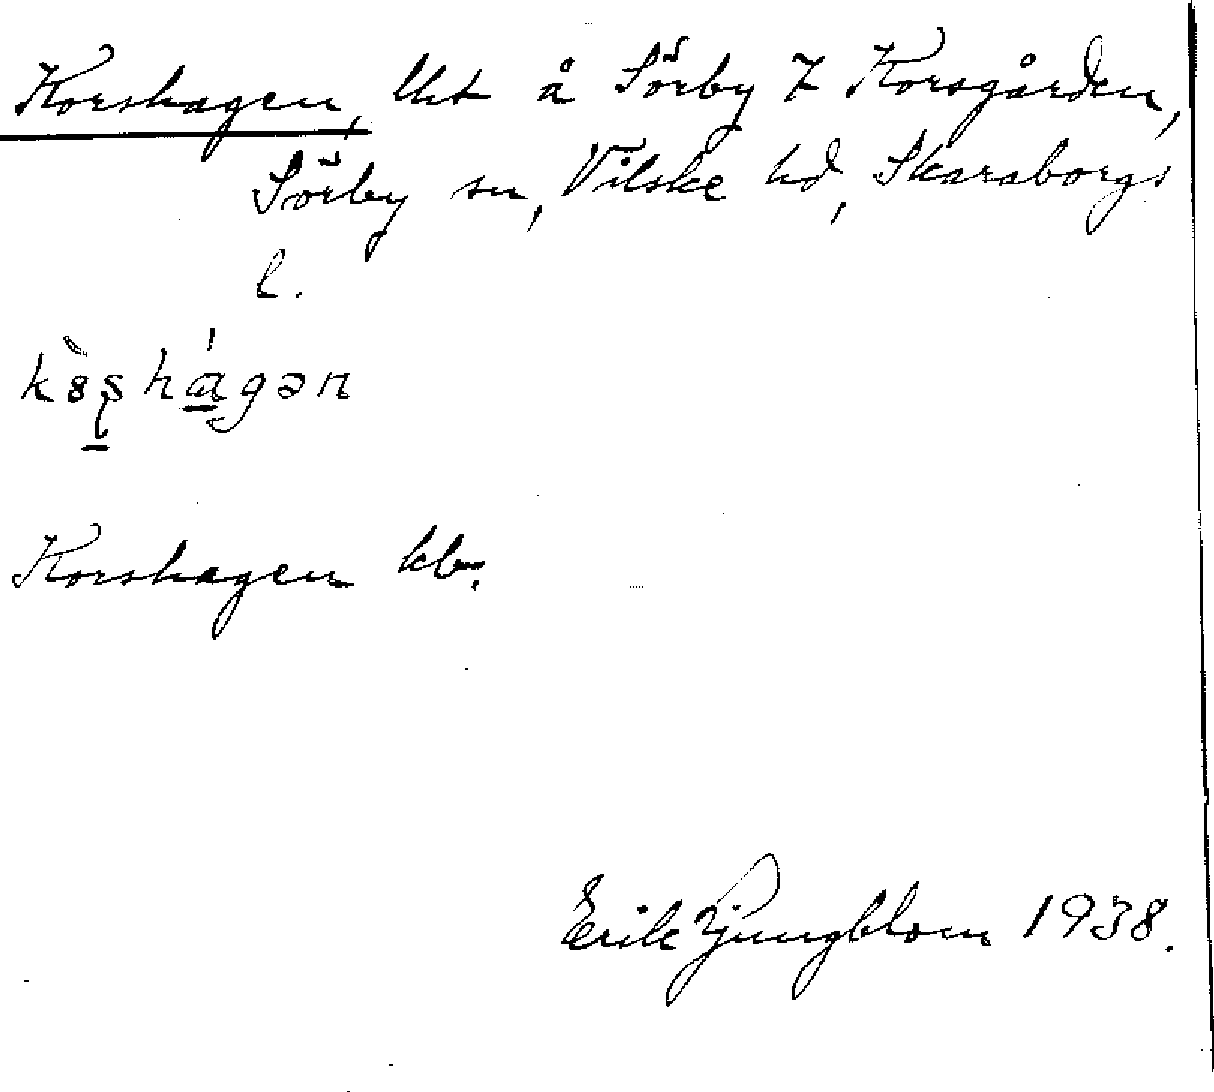 Korshagen, lht å Sörby 7 Korsgården,
Sörby sn, Vilske hd, Skaraborgs
l.
Korshagen kbr.
Erik Ljungblom 1938.